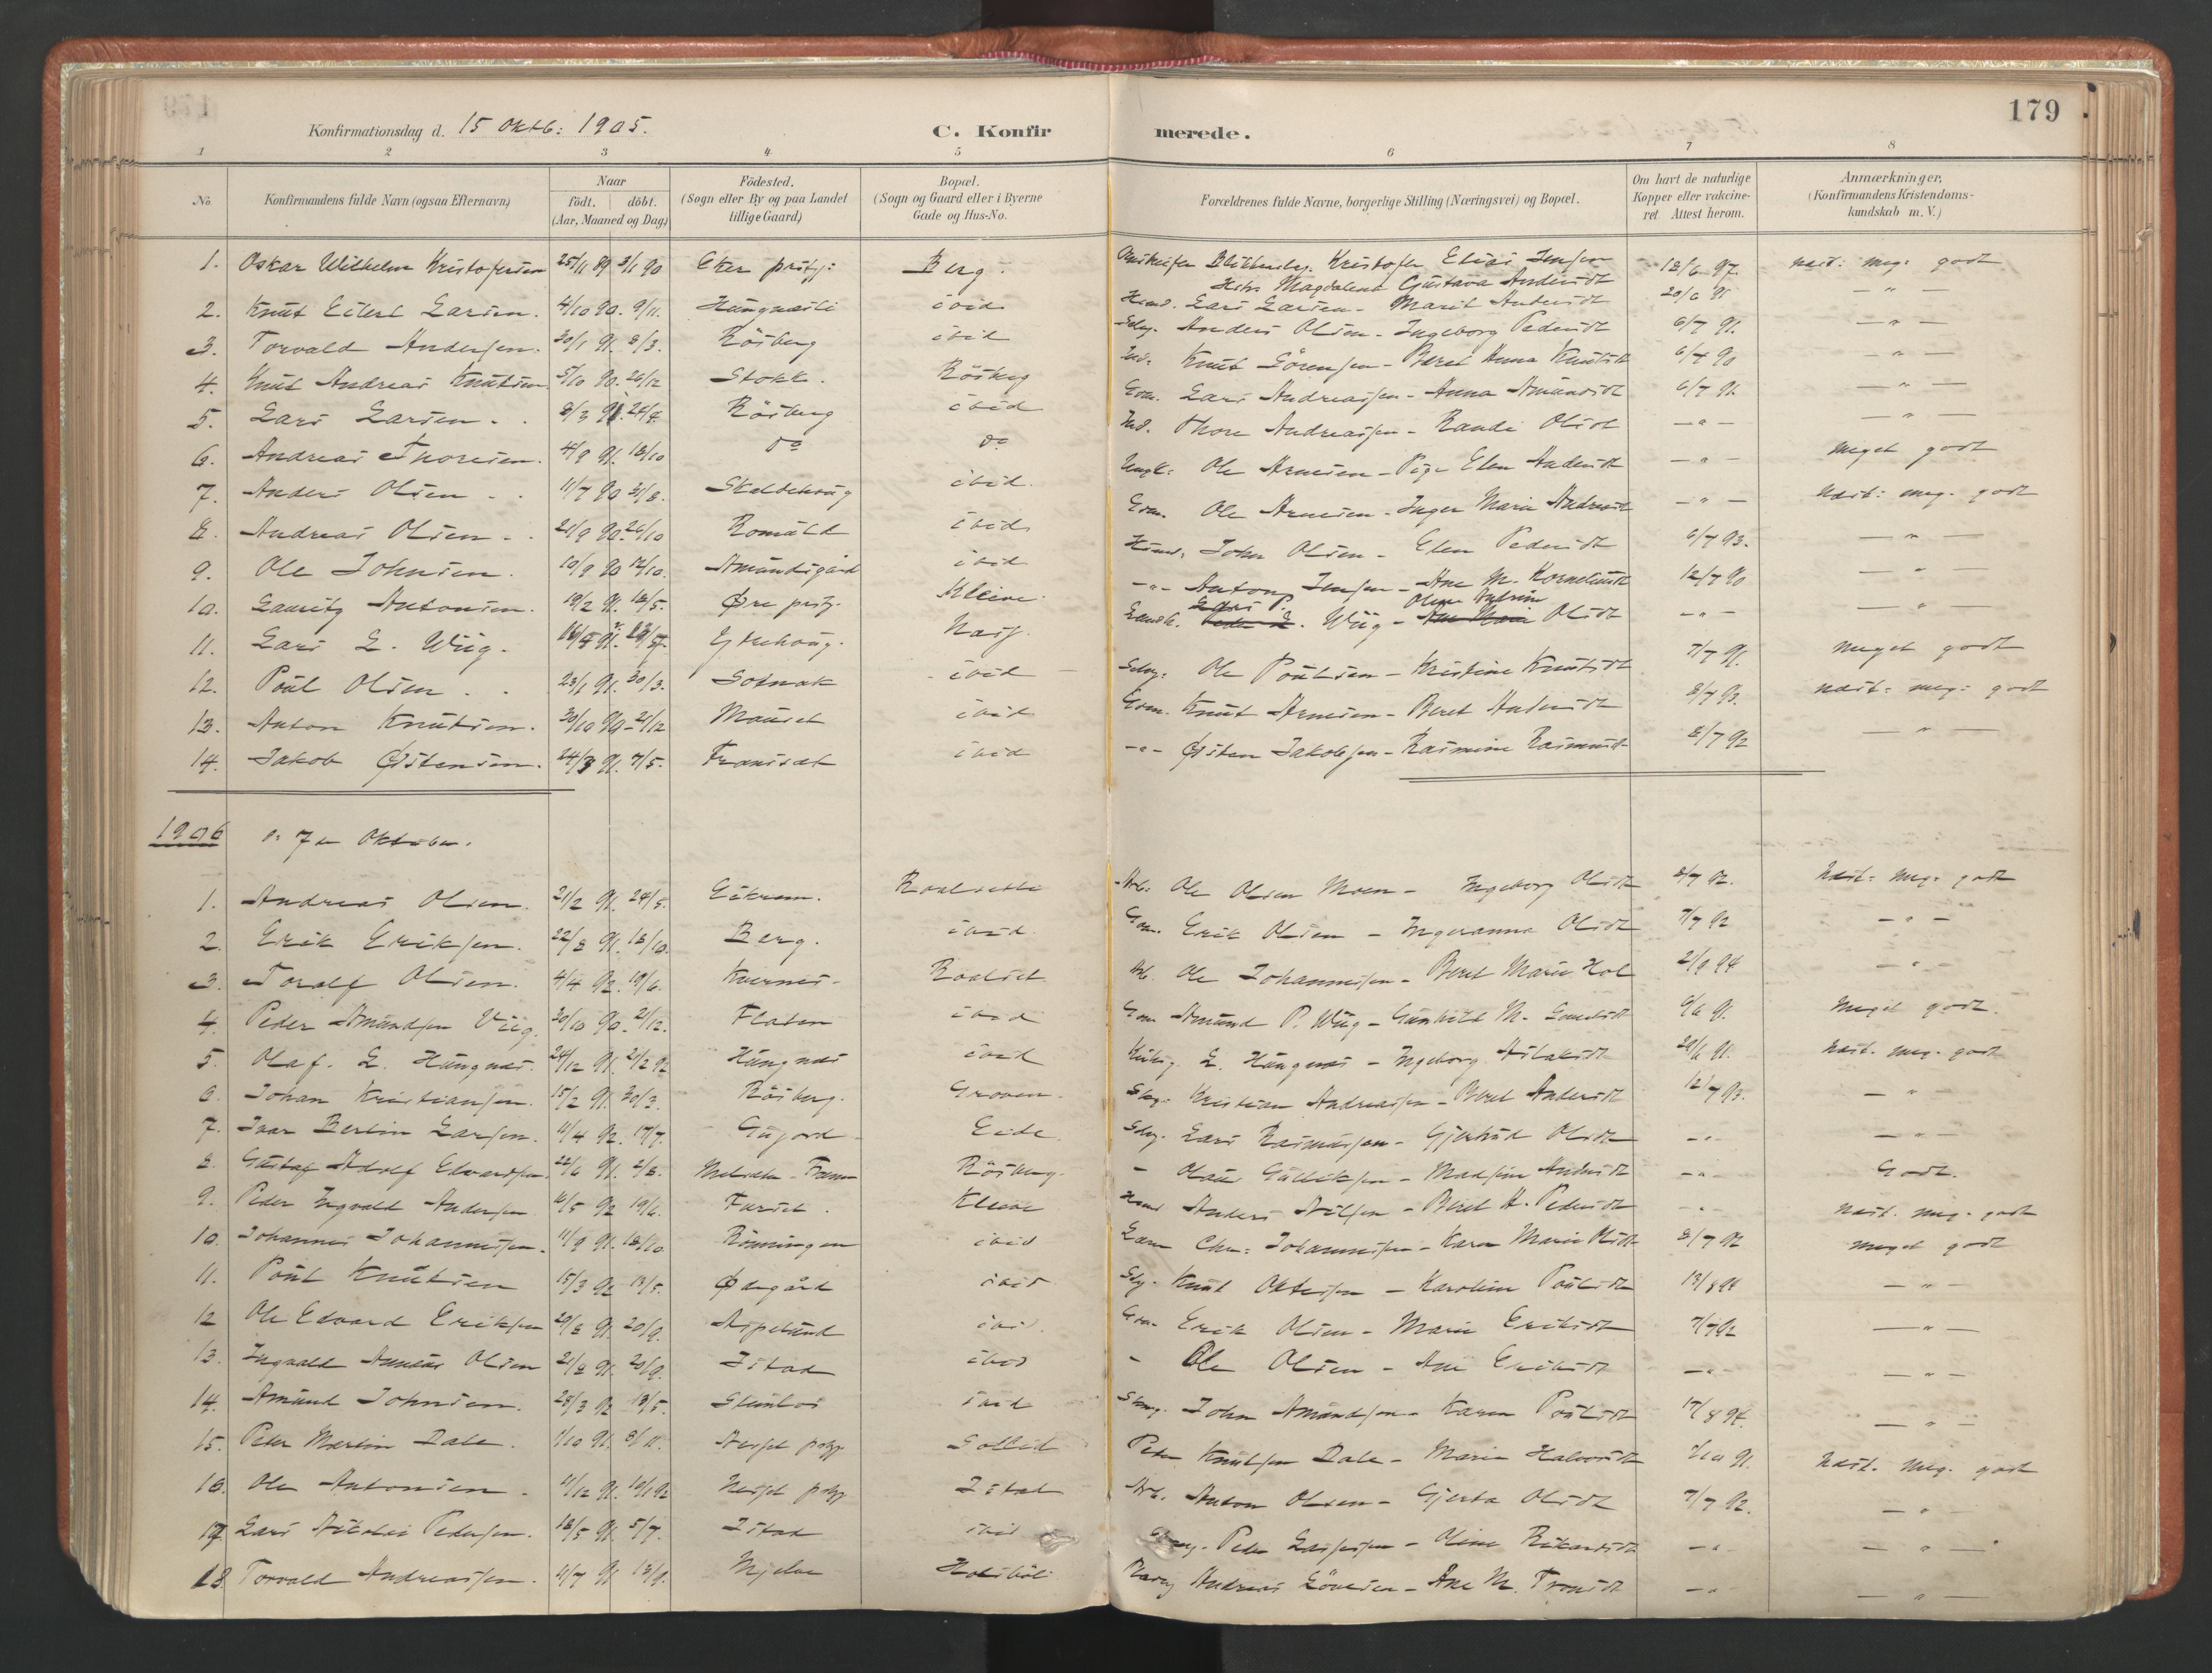 179
Konfirmationsdag d. 15 Oktb: 1905. C. Konfirmerede.
1 2 3 4 5 6 7 8
No. Konfirmandens fulde Navn (ogsaa Efternavn) Naar født. døbt. (Aar, Maaned og Dag) Födested. (Sogn eller By og paa Landet tillige Gaard) Bopæl. (Sogn og Gaard eller i Byerne Gade og Hus-No. Forældrenes fulde Navne, borgerlige Stilling (Næringsvei) og Bopæl. Om havt de naturlige Kopper eller vakcineret. Attest herom. Anmærkninger, (Konfirmandens Kristendomskundskab m. V.)
1. Oskar Wilhelm Kristofersen 25/11 89 3/1 90 Eker prstgj: Berg. Kristofer Elias Jensen Magdalena Gustava Andersdt 12/6 97. næst: meg: godt
2. Knut Eilert Larsen. 4/10 90. 9/11. Hungnæsli ibid Husmd. Lars Larsen - Marit Andersdt 20/6 91 — " —
3. Torvald Andersen. 30/1 91. 8/3. Rösberg ibid Selvg. Anders Olsen - Ingeborg Pedersdt 6/7 91. — " —
4. Knut Andreas Knutsen 5/10 90. 26/12 Stokk. Rösberg Ind. Knut Sörensen - Beret Anna Knutsdt 6/7 90 — " —
5. Lars Larsen. 8/3 91. 24/4. Rösberg ibid Gom. Lars Andreassen - Anna Amundsdt 6/7 91. — " —
6. Andreas Thoresen. 4/9 91. 18/10 do do Ind. Thore Andreassen - Randi Olsdt — " — — " —
7. Anders Olsen 11/7 90 31/8. Skaldehaug ibid. Ungk: Ole Arnesen - Pige Elen Andersdt — " — meget godt
8. Andreas Olsen 21/9 90. 26/10 Romuld ibid Gom. Ole Arnesen - Inger Marie Andersdt — " — næst: meg. godt
9. Ole Johnsen. 10/9 90 12/10. Amundsgård ibid Husmd. John Olsen - Elen Pedersdt 6/7 93. — " —
10. Lauritz Antonsen. 19/2 91. 18/5. Øre prstg. Kleive. — " — Anton Jensen - Ane M. Korneliusdt 12/7 90 — " —
11. Lars L. Wiig. Ytrehaug. Næsj. Landh. Lars P. Wiig - Oline Olsdt — " — — " —
12. Poul Olsen 23/1 91. 30/3. Solnæk ibid Selvg: Ole Poulsen - Kristine Knutsdt 7/7 91. meget godt
13. Anton Knutsen. 30/10 90 - 21/12 Mauset ibid Gom. Knut Arnesen - Beret Andersdt 8/7 93. næst: meg: godt
14. Jakob Østensen. 24/3 91. 7/5. Franisæt ibid — " — Østen Jakobsen - Rasmine Rasmusd. 8/7 92 — " —
1906 d: 7de Oktober.
1. Andreas Olsen. 21/2 91. 24/5. Eikrem. Roaldsetli Arb: Ole Olsen Moen - Ingeborg Olsdt 8/7 92. næst: meg: godt
2. Erik Eriksen. 22/8 91. 18/10. Berg. ibid Gom. Erik Olsen - Ingeranna Olsdt 7/7 92 — " —
3. Toralf Olsen. 4/4 92. 19/6. Kvernes - Roaldset Arb. Ole Johannessen - Beret Marie Hol 21/9 94 — " —
4. Peder Amundsen Viig. 30/10 90. 21/12. Flaten ibid Gom Amund P. Wiig - Gunhild M. 9/6 91. meget godt.
5. Olaf. L. Hungnæs. 24/12 91. 21/2 92 Hungnæs ibid L. Hungnæs - Ingeborg Aslaksdt 29/6 91. næst. meg. godt
6. Johan Kristiansen. 15/2 91. 30/3. Rösberg. Groven. Selvg: Kristian Andreassen - Beret Andersdt 12/7 93. — " —
7. Ivar Bertin Larsen. 11/4 92. 17/7. Gujord Eide. Selvg. Lars Rasmussen - Gjertrud Olsdt — " — — " —
8. Gustaf Adolf Edvardsen. 22/6 91. 2/8. Rösberg. - Olaus Gulliksen - Madsine Andersdt — " — Godt.
9. Peder Ingvald Andersen 4/5 92 19/6. Furset. Kleive Husmd Anders Nilsen - Beret H. Pedersdt — " — næst. meg. godt
10. Johannes Johannessen. 11/9 91. 18/10 Rönningen ibid Chr: Johannessen - Karen Marie Olsdt 8/7 92 meget godt
11. Poul Knutsen 15/3 92 13/5. Ødegård ibid Selvg. Knut Ostensen - Karoline Poulsdt 13/8 94 — " —
12 Ole Edvard Eriksen 29/8 91 20/9. Aspelund ibid. Gom. Erik Olsen - Marie Eriksdt 7/7 92 — " —
13. Ingvald Anneus Olsen 21/8 91. 20/9. Istad ibid - Ole Olsen - Ane Eriksdt — " — — " —
14. Amund Johnsen. 28/3 92 13/5. Stenlös ibid John Amundsen - Karen Poulsdt 17/8 94. — " —
15. Peter Martin Dale. 1/10 91. 8/11. Nesset prstgj. Solliid Peder Knutsen Dale - Marie Halvorsdt 7/10 91. næst. meg. godt
16. Ole Antonsen. 4/12 91. 10/1 92 Nesset prstgj Istad Arb. Anton Olsen - Gjerta Olsdt 7/7 92. — " —
17. Lars Nikolai Pedersen. 18/5 91 5/7. Istad ibid Peder Larsen - Oline Rikardsdt — " — — " —
18. Torvald Andreassen. 4/7 91 13/9. Mjelve Holsböli Andreas Lövesen - Ane M. Tronsdt — " — — " —